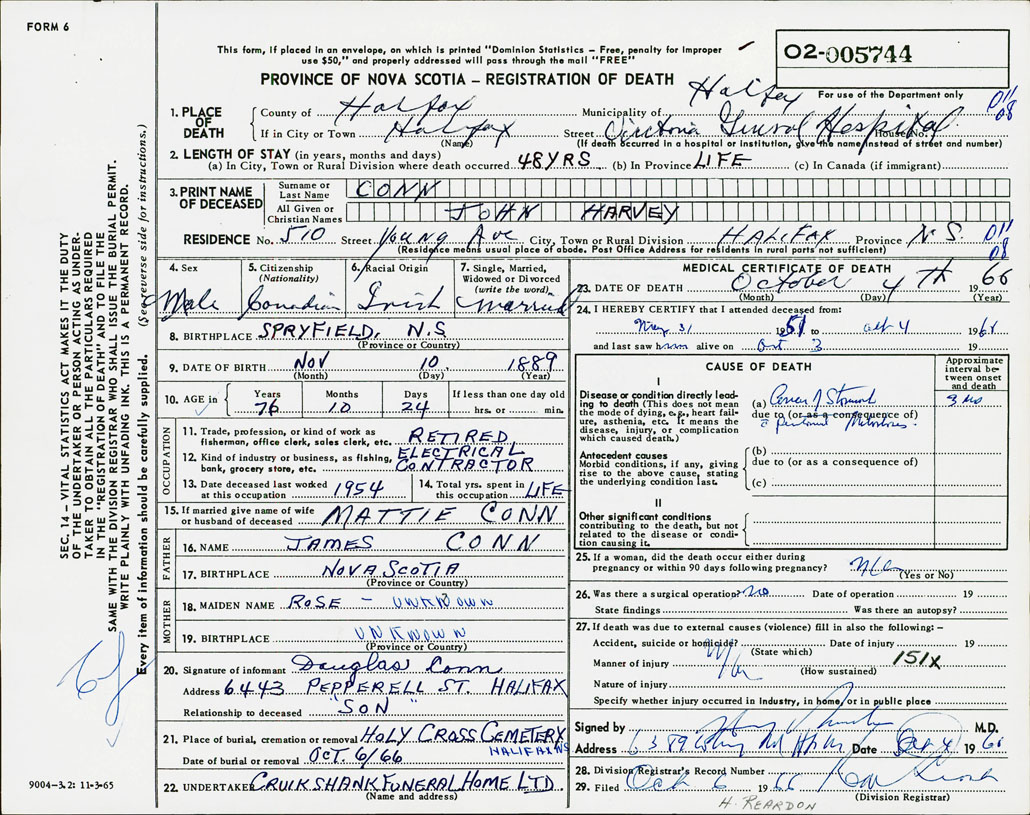 FORM 6
This form, if placed in an envelope, on which is printed "Dominion Statistics – Free, penalty for improper
use $50," and properly addressed will pass through the mail "FREE"
O2-005744
PROVINCE OF NOVA SCOTIA – REGISTRATION OF DEATH
For use of the Department only
011
08
1. PLACE OF DEATH
County of Halifax Municipality of Halifax
If in City or Town Halifax Street Victoria General Hospital House No.
(Name) (If death occurred in a hospital or institution, give the name instead of street and number)
2. LENGTH OF STAY (in years, months and days)
(a) In City, Town or Rural Division where death occurred 48 YRS (b) In Province LIFE (c) In Canada (if immigrant)
3. PRINT NAME OF DECEASED
Surname or Last Name CONN
All Given or Christian Names JOHN HARVEY
RESIDENCE No. 510 Street Young Ave City, Town or Rural Division HALIFAX Province N.S.
(Residence means usual place of abode. Post Office Address for residents in rural parts not sufficient)
011
08
4. Sex
Male
5. Citizenship
(Nationality)
Canadian
6. Racial Origin
Irish
7. Single, Married,
Widowed or Divorced
(write the word)
Married
8. BIRTHPLACE SPRYFIELD, N.S
(Province or Country)
9. DATE OF BIRTH NOV 10 1889
(Month) (Day) (Year)
10. AGE in
Years Months Days If less than one day old
76 10 24 hrs. or min.
OCCUPATION
11. Trade, profession, or kind of work as
fisherman, office clerk, sales clerk, etc. RETIRED
12. Kind of industry or business, as fishing,
bank, grocery store, etc. ELECTRICAL CONTRACTOR
13. Date deceased last worked
at this occupation 1954
14. Total yrs. spent in
this occupation LIFE
15. If married give name of wife
or husband of deceased MATTIE CONN
FATHER
16. NAME JAMES CONN
17. BIRTHPLACE NOVA SCOTIA
(Province or Country)
MOTHER
18. MAIDEN NAME ROSE – UNKNOWN
19. BIRTHPLACE UNKNOWN
(Province or Country)
20. Signature of informant Douglas Conn
Address 6443 PEPPERELL ST. HALIFAX
Relationship to deceased "SON"
21. Place of burial, cremation or removal HOLY CROSS CEMETERY
HALIFAX NS
Date of burial or removal OCT. 6/66
22. UNDERTAKER CRUIKSHANK FUNERAL HOME LTD
(Name and address)
MEDICAL CERTIFICATE OF DEATH
23. DATE OF DEATH October 4TH 1966
(Month) (Day) (Year)
24. I HEREBY CERTIFY that I attended deceased from:
31 19 to Oct 4 19
and last saw h alive on Oct 3 19
CAUSE OF DEATH
Approximate
interval be-
tween onset
and death
I
Disease or condition directly lead-
ing to death (This does not mean
the mode of dying, e.g., heart fail-
ure, asthenia, etc. It means the
disease, injury, or complication
which caused death.)
(a) Cancer of Stomach 3 mo
due to (or as a consequence of)
Antecedent causes
Morbid conditions, if any, giving
rise to the above cause, stating
the underlying condition last.
(b)
due to (or as a consequence of)
(c)
II
Other significant conditions
contributing to the death, but not
related to the disease or condi-
tion causing it.
25. If a woman, did the death occur either during
pregnancy or within 90 days following pregnancy?
(Yes or No)
26. Was there a surgical operation? No Date of operation 19
State findings Was there an autopsy?
27. If death was due to external causes (violence) fill in also the following: –
Accident, suicide or homicide? Date of injury 19
(State which)
Manner of injury 151X
(How sustained)
Nature of injury
Specify whether injury occurred in industry, in home, or in public place
Signed by M.D.
Address Date Oct 4 1966
28. Division Registrar's Record Number
29. Filed Oct 6 1966
(Division Registrar)
H. REARDON
SEC. 14 – VITAL STATISTICS ACT MAKES IT THE DUTY
OF THE UNDERTAKER OR PERSON ACTING AS UNDER-
TAKER TO OBTAIN ALL THE PARTICULARS REQUIRED
IN THE "REGISTRATION OF DEATH" AND TO FILE THE
SAME WITH THE DIVISION REGISTRAR WHO SHALL ISSUE THE BURIAL PERMIT.
WRITE PLAINLY WITH UNFADING INK. THIS IS A PERMANENT RECORD.
Every item of information should be carefully supplied. (See reverse side for instructions.)
9004-3.2: 11-3-65